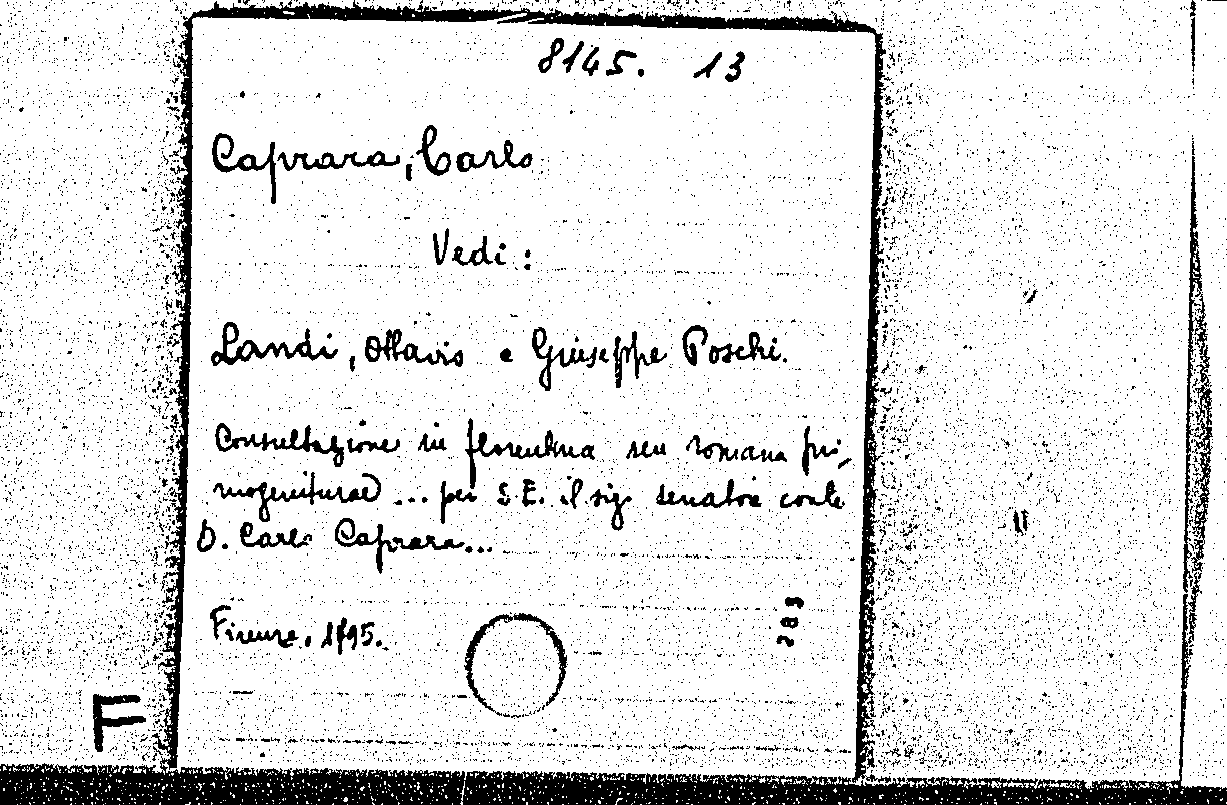 8145. 13
Caprara, Carlo
Vedi :
Landi, Ottavio e Giuseppe Poschi.
Consultazione in florentina seu romana pri-
mogeniturae ... per S.E. il sig. senatore conte
D. Carlo Caprara...
Firenze. 1795.
283
F